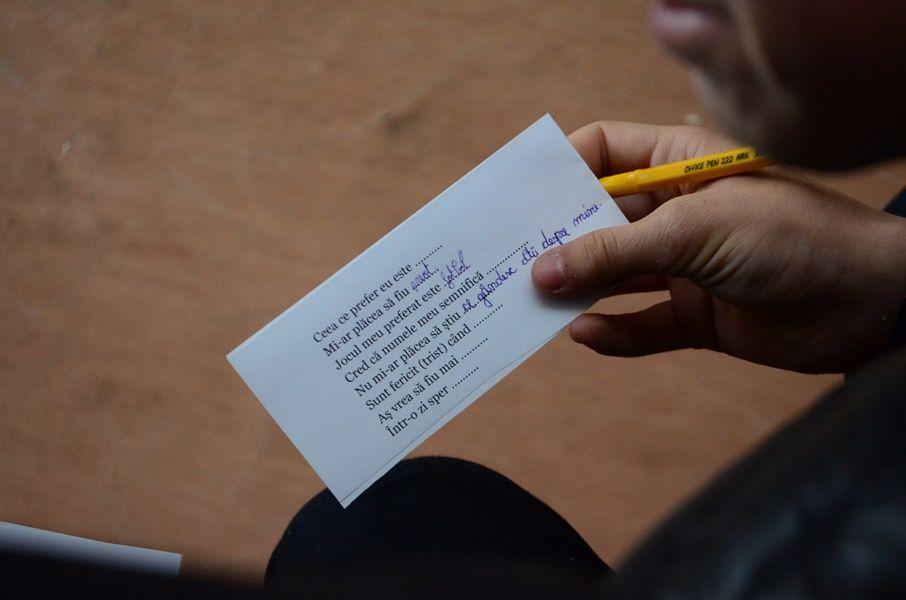 OFFICE PEN 222 ARK
Ceea ce prefer eu este ........
Mi-ar plăcea să fiu
Jocul meu preferat este fotbal
Cred că numele meu semnifică ............
Nu mi-ar plăcea să știu ce gândesc alții despre mine.
Sunt fericit (trist) când .........
Aș vrea să fiu mai .........
Într-o zi sper .........